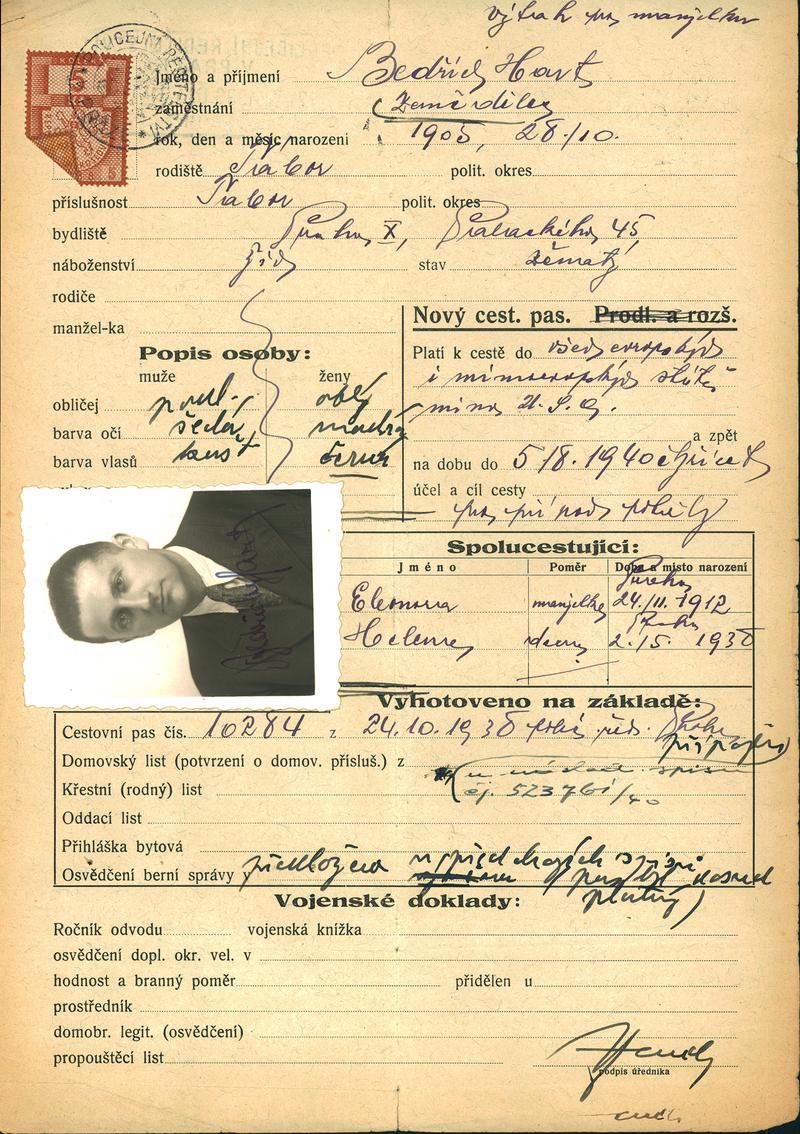 výtah pro manželku
Jméno a příjmení Bedřich Hart
zaměstnání zemědělec
rok, den a měsíc narozeni 1905, 28./10.
rodiště Tábor polit. okres
příslušnost Tábor polit. okres
bydliště Praha X, Palackého 45
náboženství žid. stav ženatý
rodiče
manžel-ka
Nový cest. pas. Prodl. a rozš.
Popis osoby:
muže ženy
obličej podl. obl.
barva očí šedá modrá
barva vlasů kašt černé
Platí k cestě do všech evropských
i mimoevropských států
mimo U.S.A.
a zpět
na dobu do 5/8. 1940
účel a cíl cesty
Spolucestující:
Jméno Poměr Doba a místo narození
Praha
Eleonora manželka 24./11. 1912
Praha
Helena dcera 2./5. 1938
Vyhotoveno na základě:
Cestovní pas čís. 10284 z 24.10.1938 Praha
Domovský list (potvrzení o domov. přísluš.) z
Křestní (rodný) list čj. 523761/40
Oddací list
Přihláška bytová
Osvědčení berní správy předložena
platný)
Vojenské doklady:
Ročník odvodu vojenská knížka
osvědčení dopl. okr. vel. v
hodnost a branný poměr přidělen u
prostředník
domobr. legit. (osvědčení)
propouštěcí list
podpis úředníka